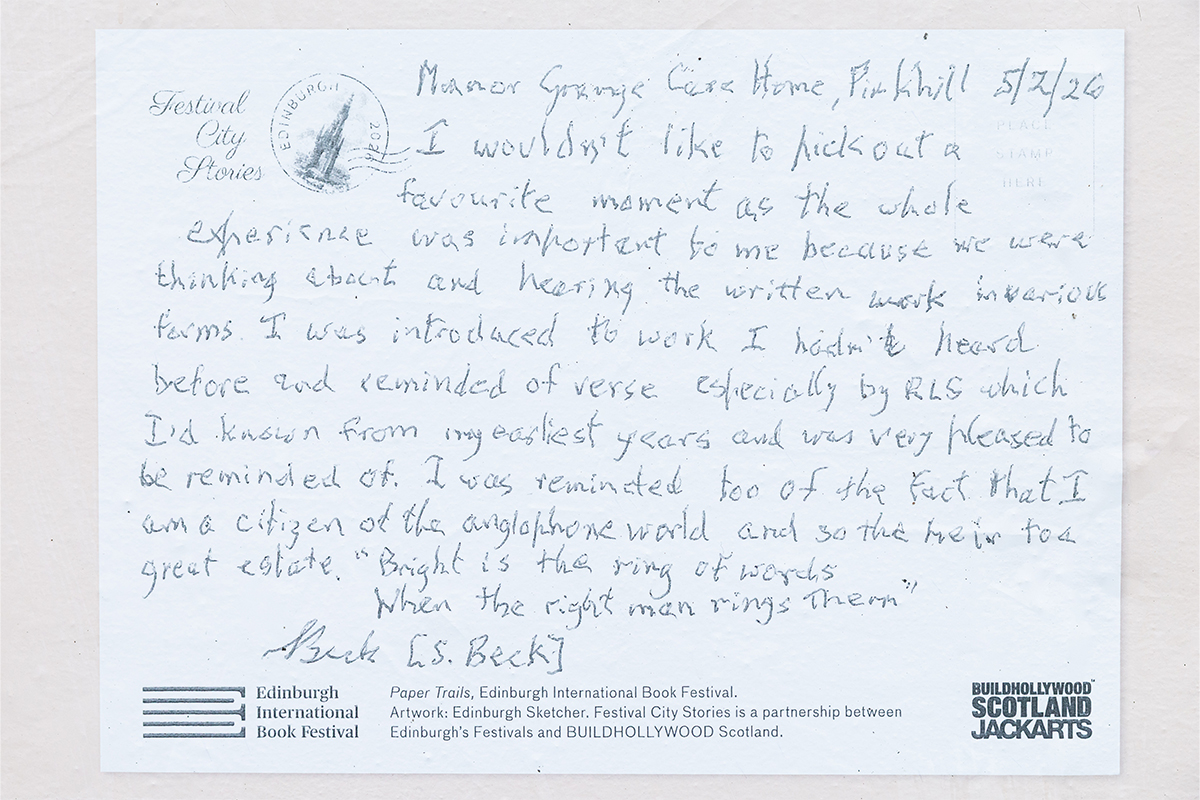 Festival
City
Stories
EDINBURGH 202
PLACE
STAMP
HERE
Manor Grange Care Home, Pinkhill 5/2/26
I wouldn't like to pick out a
favourite moment as the whole
experience was important to me because we were
thinking about and hearing the written work in various
forms. I was introduced to work I hadn't heard
before and reminded of verse especially by RLS which
I'd known from my earliest years and was very pleased to
be reminded of. I was reminded too of the fact that I
am a citizen of the anglophone world and so the heir to a
great estate. "Bright is the ring of words
When the right man rings them"
Beck [S. Beck]
Edinburgh
International
Book Festival
Paper Trails, Edinburgh International Book Festival.
Artwork: Edinburgh Sketcher. Festival City Stories is a partnership between
Edinburgh's Festivals and BUILDHOLLYWOOD Scotland.
BUILDHOLLYWOOD™
SCOTLAND
JACKARTS